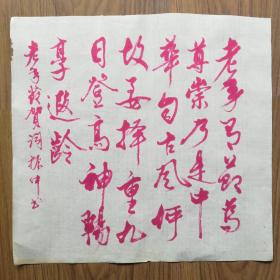 老年节万
尊崇乃是中
华自古风俗
故要择重九
日登高神畅
享遐龄
老年节贺词振中书